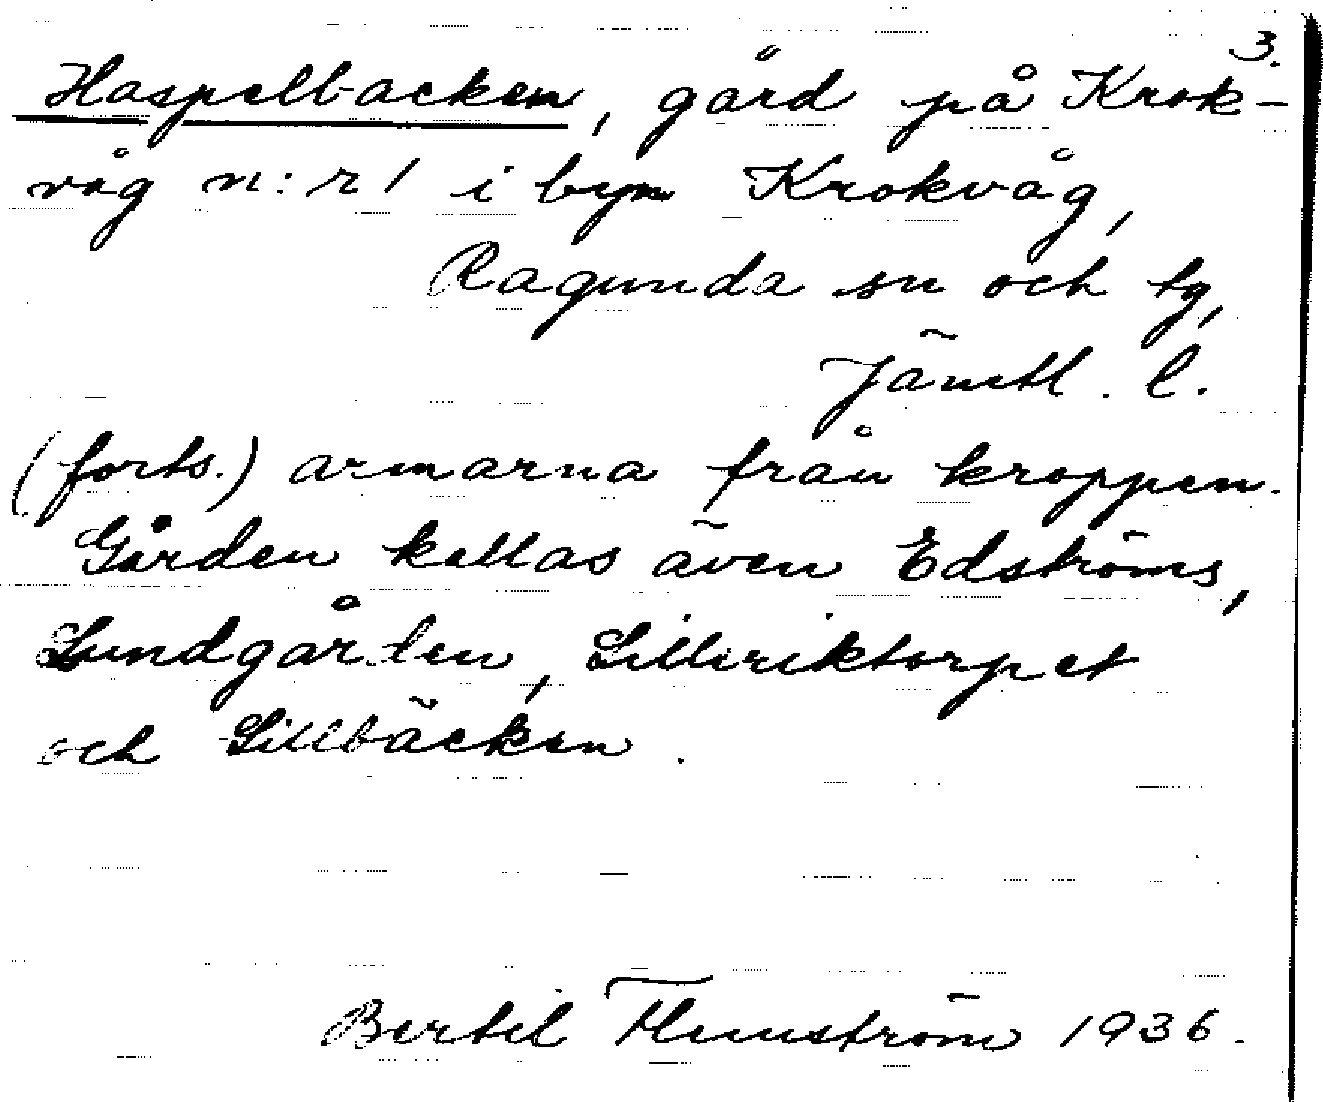 3.
Haspelbacken, gård på Krok-
våg n:r 1 i byn Krokvåg,
Ragunda sn och tg,
Jämtl. l.
(forts.) armarna från kroppen.
Gården kallas även Edströms,
Lundgården, Lilleriktorpet
och Lillbäcken.
Bertil Flemström 1936.